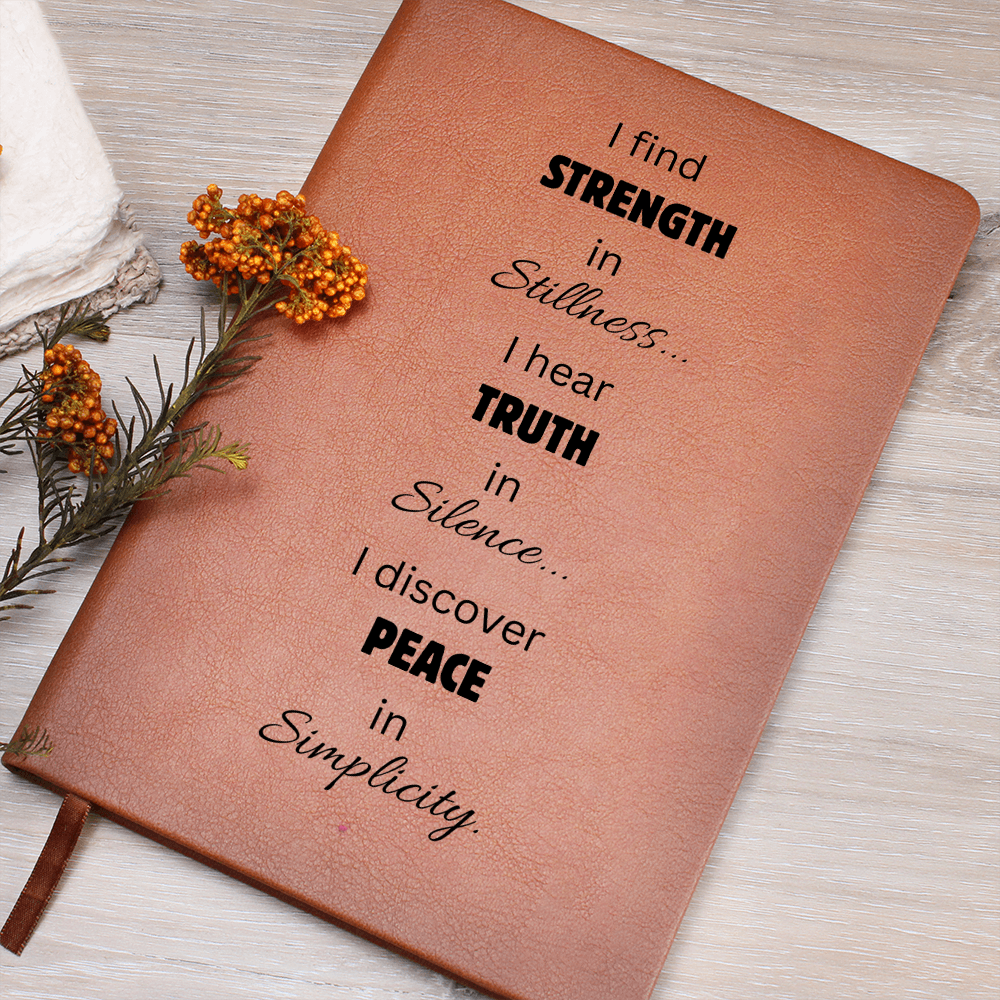 I find
STRENGTH
in
Stillness...
I hear
TRUTH
in
Silence...
I discover
PEACE
in
Simplicity.